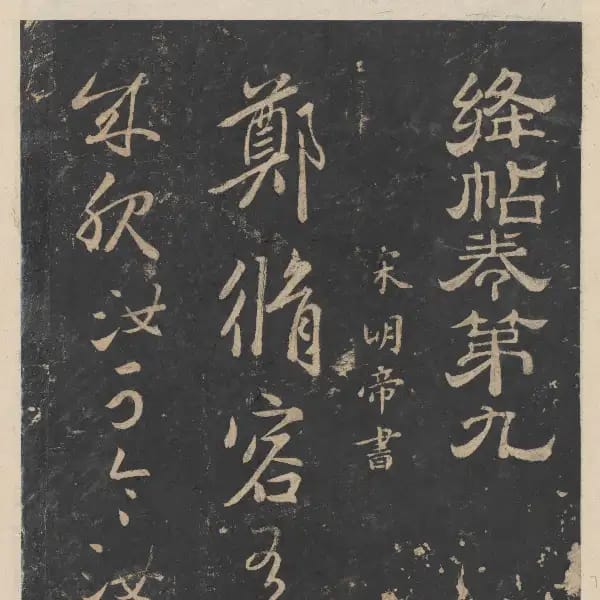 絳帖卷第九
宋明帝書
鄭脩容
汝可